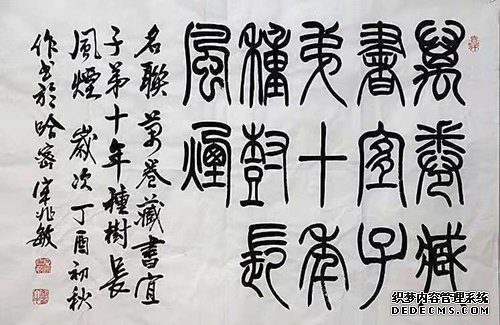 萬卷藏
書宜子
弟十年
種樹長
風煙
名聯萬卷藏書宜
子弟十年種樹長
風煙 歲次丁酉初秋
作书於哈密宋兆敏
织梦内容管理系统
DEDECMS.COM